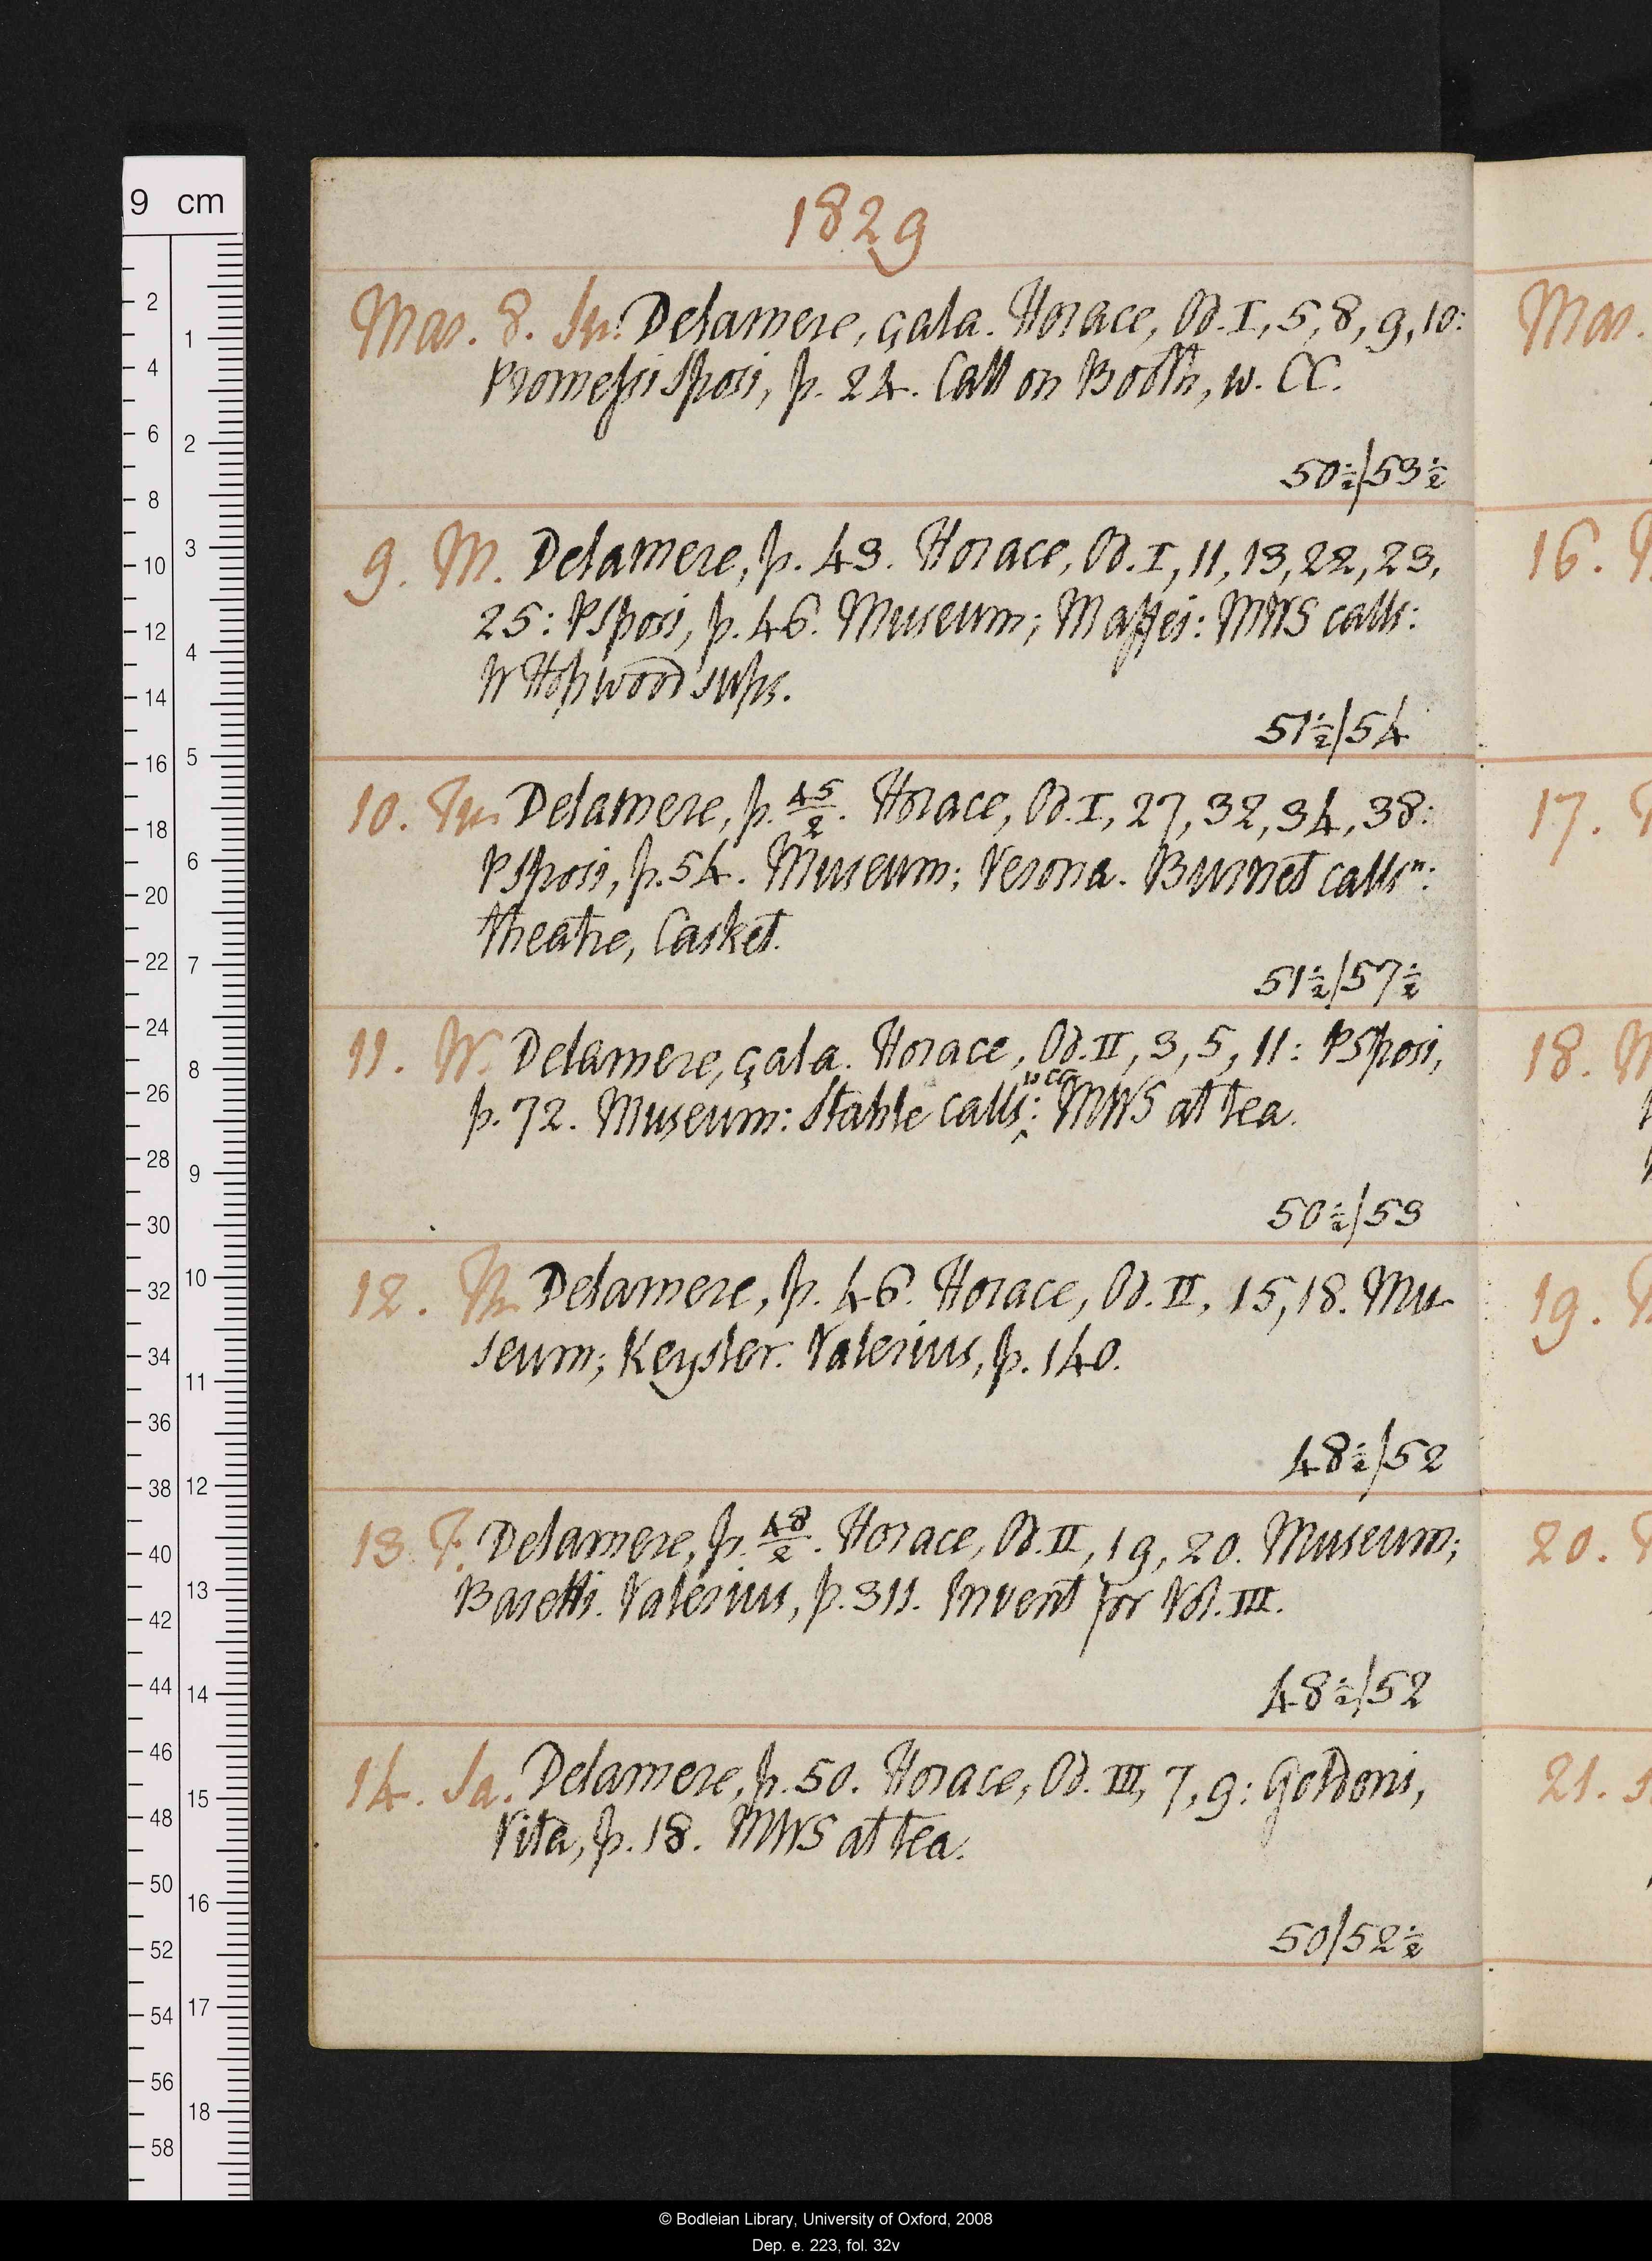 1829
Mar. 8. Su. Delamere, çala. Horace, Od. I, 5, 8, 9, 10:
Promessi Sposi, p. 24. Call on Booth, w. CC.
50½/53½
9. M. Delamere, p. 43. Horace, Od. I, 11, 13, 22, 23,
25: PSposi, p. 46. Museum; Maffei: MWS calls:
W Hopwood sups.
51½/54
10. Tu. Delamere, p. 45/2. Horace, Od. I, 27, 32, 34, 38:
PSposi, p. 54. Museum; Verona. Burnet calls n:
theatre, Casket.
51½/57½
11. W. Delamere, çala. Horace, Od. II, 3, 5, 11: PSposi,
p. 72. Museum: Stable calls: MWS at tea.
50½/53
12. Th. Delamere, p. 46. Horace, Od. II, 15, 18. Mu-
seum; Keysler. Valerius, p. 140.
48½/52
13. F. Delamere, p. 48/2. Horace, Od. II, 19, 20. Museum;
Baretti. Valerius, p. 311. Invent for Vol. III.
48½/52
14. Sa. Delamere, p. 50. Horace, Od. III, 7, 9: Goldoni,
Vita, p. 18. MWS at tea.
50/52½
Mar.
16.
17.
18.
19.
20.
21.
9 cm
2 4 6 8 10 12 14 16 18 20 22 24 26 28 30 32 34 36 38 40 42 44 46 48 50 52 54 56 58
1 2 3 4 5 6 7 8 9 10 11 12 13 14 15 16 17 18
© Bodleian Library, University of Oxford, 2008
Dep. e. 223, fol. 32v